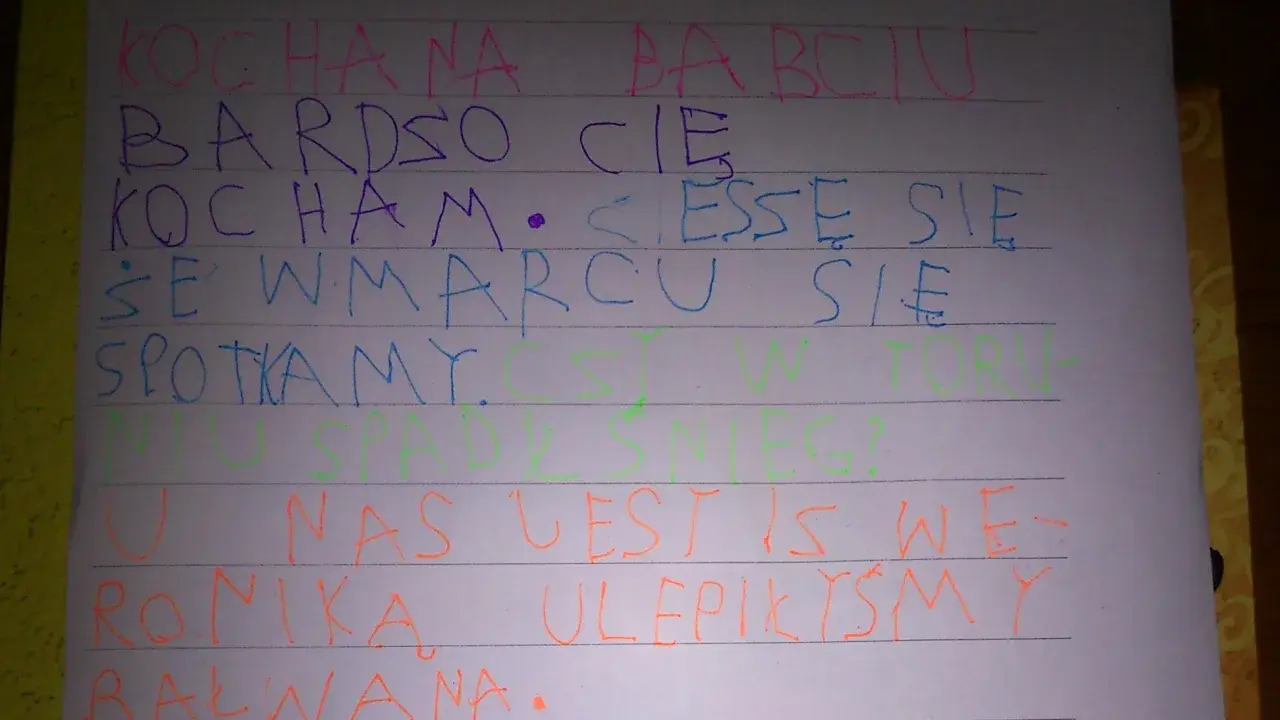 KOCHANA BABCIU
BARDSO CIĘ
KOCHAM. CIESSĘ SIĘ
ŻE WMARCU SIĘ
SPOTKAMY. CSY W TORU-
NIU SPADŁ ŚNIEG?
U NAS JEST IS WE-
RONIKĄ ULEPIŁYŚMY
BAŁWANA.